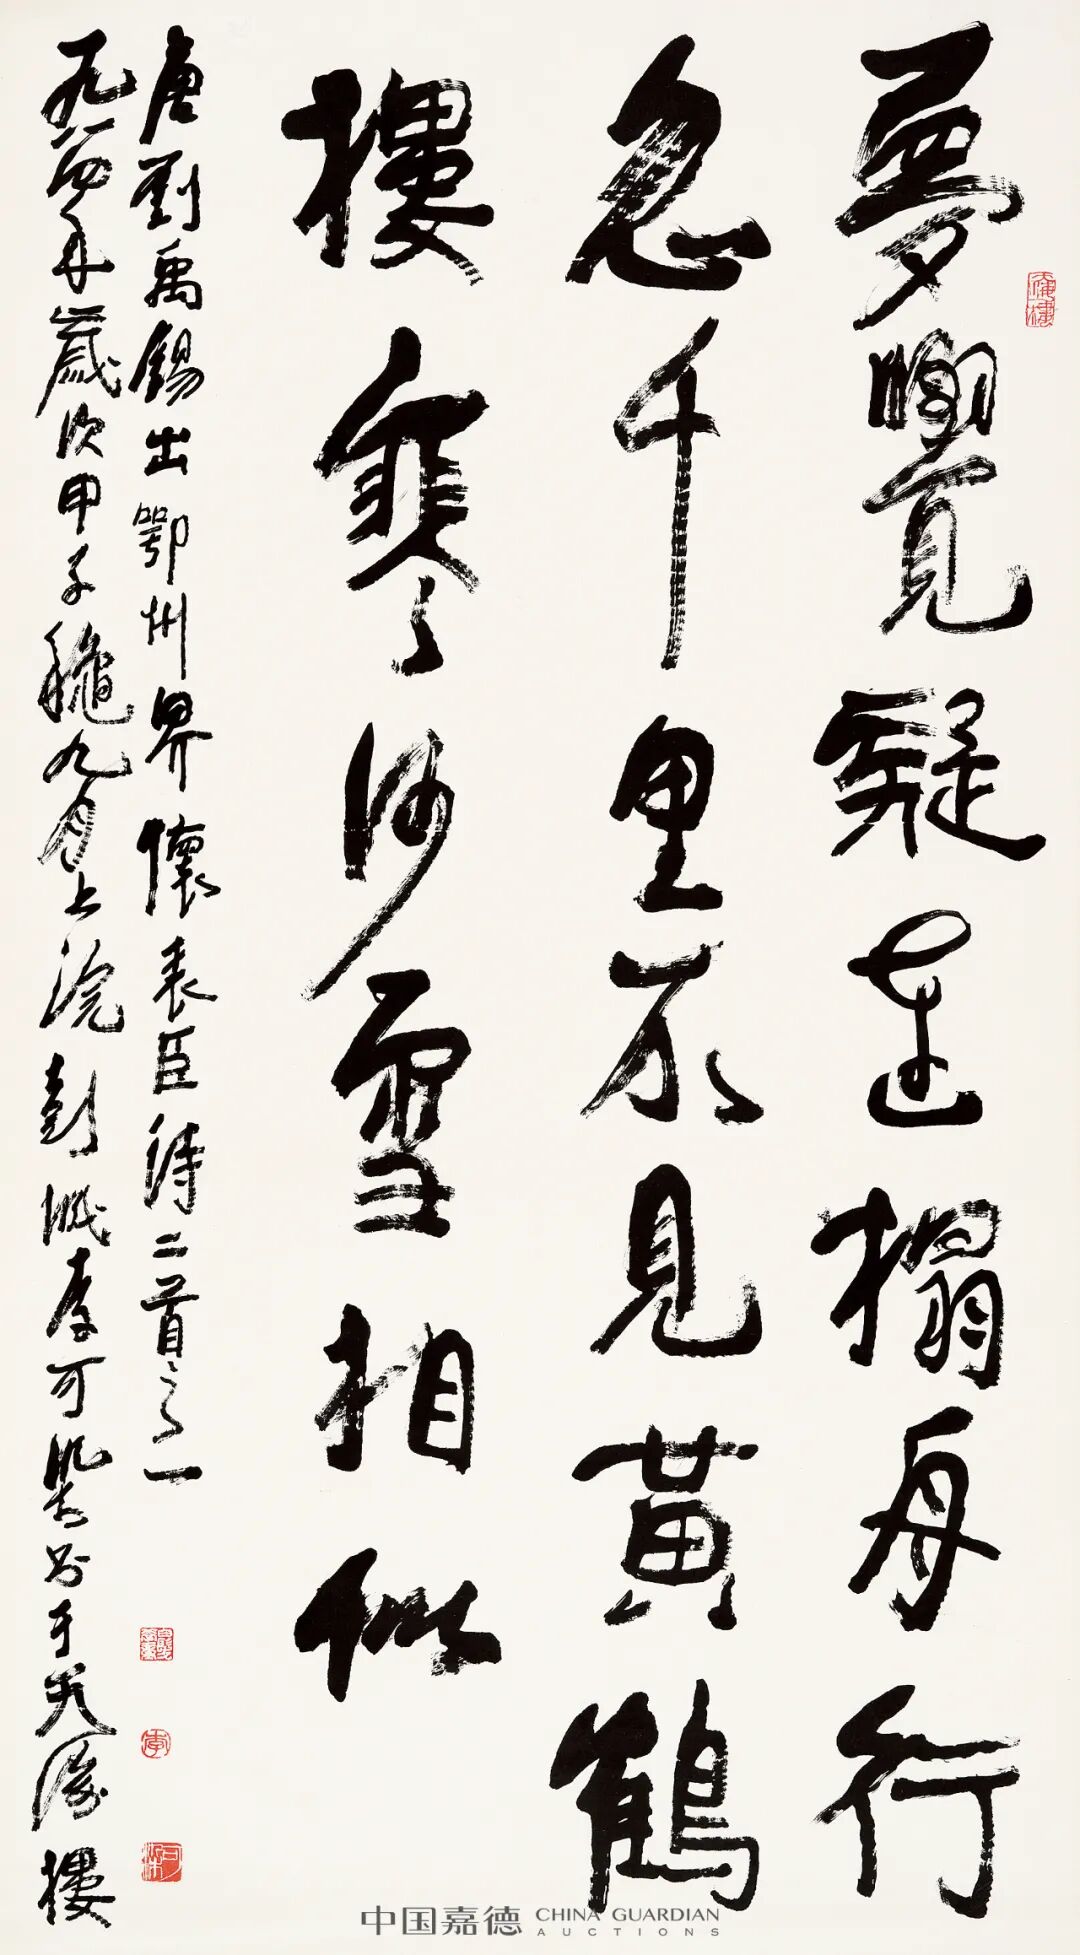 夢覺疑連榻舟行
忽千里不見黃鶴
樓寒沙雪相似
唐劉禹錫出鄂州界懷表臣詩二首之一
一九八四年歲次甲子穐九月上浣彭城李可染書于天海樓
李
可染
中国嘉德 CHINA GUARDIAN
AUCTIONS